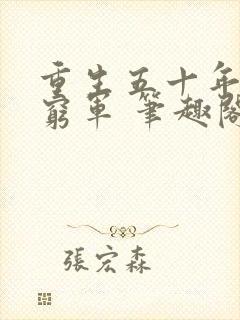 重生五十年
窮軍 筆趣閣
張宏森